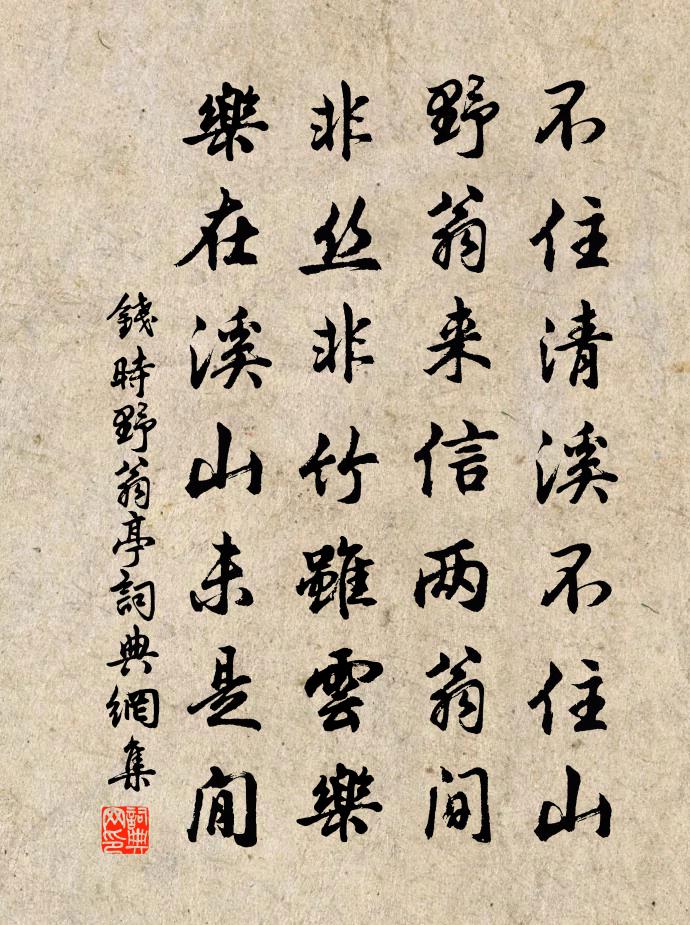 不住清溪不住山
野翁来信两翁间
非丝非竹雖雲樂
樂在溪山未是闲
錢時野翁亭詞典網集
詞典网印